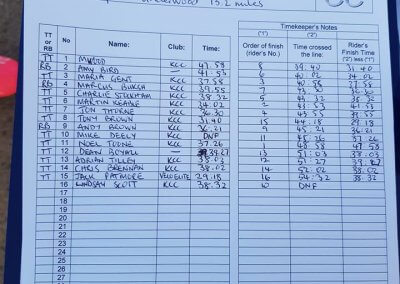 13.2 miles
CC
Timekeeper's Notes
TT or RB No Name: Club: Time: ('1') Order of finish (rider's No.) ('2') Time crossed the line: Rider's Finish Time ('2' less '1')
TT 1 KCC 47.58 8 39.40 31 40
RB 2 AMY BIRD — 41.53 6 40.02 34 02
TT 3 MARIA GENT KCC 37.58 3
RB 4 MARCUS BURCH KCC 39.55 7
TT 5 CHARLIE STICKHAM KCC 38.32
TT 6 MARTIN KEABLE KCC 34.02 2
TT 7 JON THORNE KCC 36.30 4 43.55
TT 8 TONY BROWN KCC 31.40 15 44.18 29.18
RB 9 ANDY BROWN KCC 36.21 9 45.21 36.21
TT 10 MIKE DEELY KCC DNF 11 37.26
TT 11 NOEL TOONE KCC 37.26 1 48.58 47 58
TT 12 DEAN BOYALL — 39.27 13 51:03 38.03
TT 13 ADRIAN TILLEY KCC 38.03 12 51.27 39
TT 14 CHRIS BRENNAN KCC 38.02 14 52.02 38.02
TT 15 JACK PATMORE VELO ELITE 29.18 16 54:32 38.32
16 LINDSAY SCOTT KCC 38.32 10 DNF
17
18
19
20
21
22
23
24
25
26
27
28